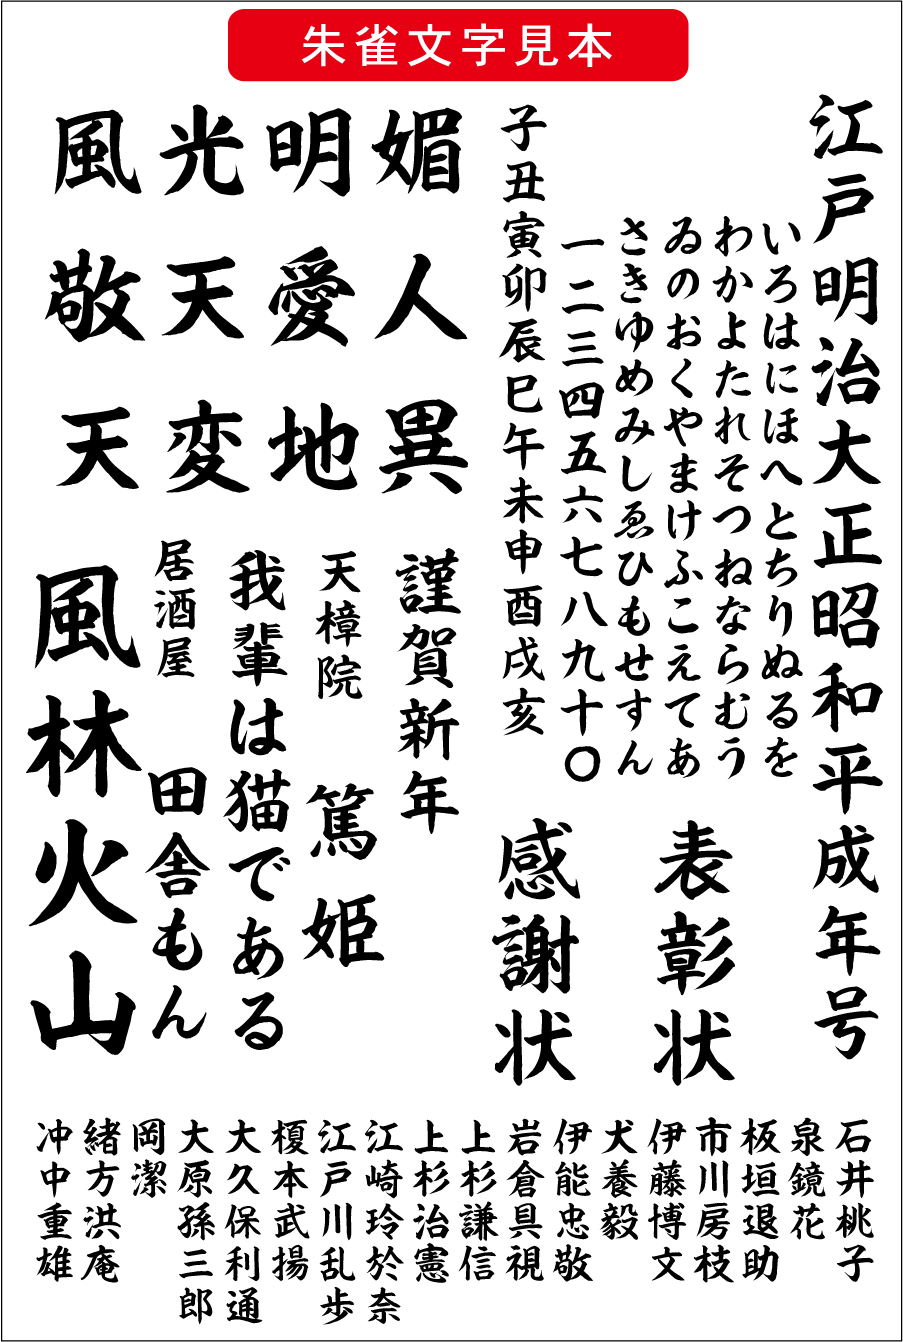 朱雀文字見本
江戸明治大正昭和平成年号
いろはにほへとちりぬるを
わかよたれそつねならむう
ゐのおくやまけふこえてあ
さきゆめみしゑひもせすん
一二三四五六七八九十〇
子丑寅卯辰巳午未申酉戌亥
表彰状
感謝状
風光明媚
敬天愛人
天変地異
謹賀新年
天樟院 篤姫
我輩は猫である
居酒屋 田舎もん
風林火山
石井桃子
泉鏡花
板垣退助
市川房枝
伊藤博文
犬養毅
伊能忠敬
岩倉具視
上杉謙信
上杉治憲
江崎玲於奈
江戸川乱歩
榎本武揚
大久保利通
大原孫三郎
岡潔
緒方洪庵
冲中重雄